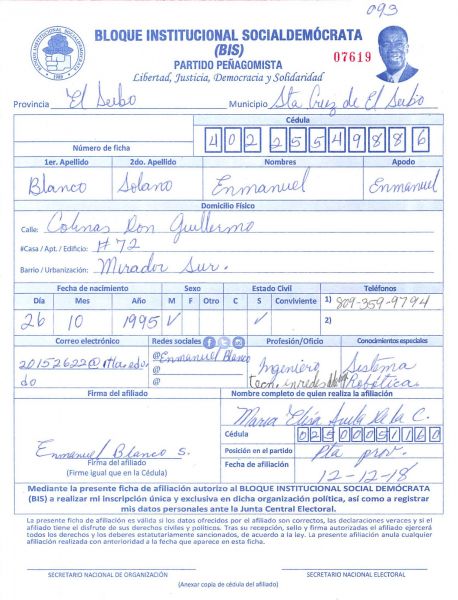 093
BLOQUE INSTITUCIONAL SOCIALDEMÓCRATA
(BIS)
PARTIDO PEÑAGOMISTA
07619
Libertad, Justicia, Democracia y Solidaridad
Provincia El Seibo Municipio Sta Cruz de El Seibo
Cédula
Número de ficha 402 2554988 6
1er. Apellido 2do. Apellido Nombres Apodo
Blanco Solano Enmanuel Enmanuel
Domicilio Físico
Calle: Colinas Don Guillermo
#Casa / Apt. / Edificio: # 72
Barrio / Urbanización: Mirador Sur.
Fecha de nacimiento Sexo Estado Civil Teléfonos
Día Mes Año M F Otro C S Conviviente 1) 809-359-9794
26 10 1995 ✓ ✓ 2)
Correo electrónico Redes sociales Profesión/Oficio Conocimientos especiales
20152622@itla.edu.do @Enmanuel Blanco Ingeniero Sistema
@ tecn. en redes Robótica
Firma del afiliado Nombre completo de quien realiza la afiliación
Maria Elisa Avila De la C.
Cédula 025 0005776 0
Enmanuel Blanco S. Posición en el partido Pta prov.
Firma del afiliado
(Firme igual que en la Cédula) Fecha de afiliación 12-12-18
Mediante la presente ficha de afiliación autorizo al BLOQUE INSTITUCIONAL SOCIAL DEMÓCRATA
(BIS) a realizar mi inscripción única y exclusiva en dicha organización política, así como a registrar
mis datos personales ante la Junta Central Electoral.
La presente ficha de afiliación es válida si los datos ofrecidos por el afiliado son correctos, las declaraciones veraces y si el
afiliado tiene el disfrute de sus derechos civiles y políticos. Tras su recepción, sello y firma autorizadas el afiliado ejercerá
todos los derechos y los deberes estatutariamente sancionados, de acuerdo a la ley. La presente afiliación anula cualquier
afiliación realizada con anterioridad a la fecha que aparece en esta ficha.
SECRETARIO NACIONAL DE ORGANIZACIÓN SECRETARIO NACIONAL ELECTORAL
(Anexar copia de cédula del afiliado)